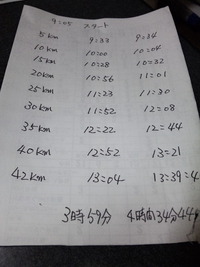 9:05 スタート
5km 9:33 9:34
10km 10:00 10:04
15km 10:28 10:32
20km 10:56 11:01
25km 11:23 11:30
30km 11:52 12:08
35km 12:22 12:44
40km 12:52 13:21
42km 13:04 13:39:4
3時間59分 4時間34分44秒